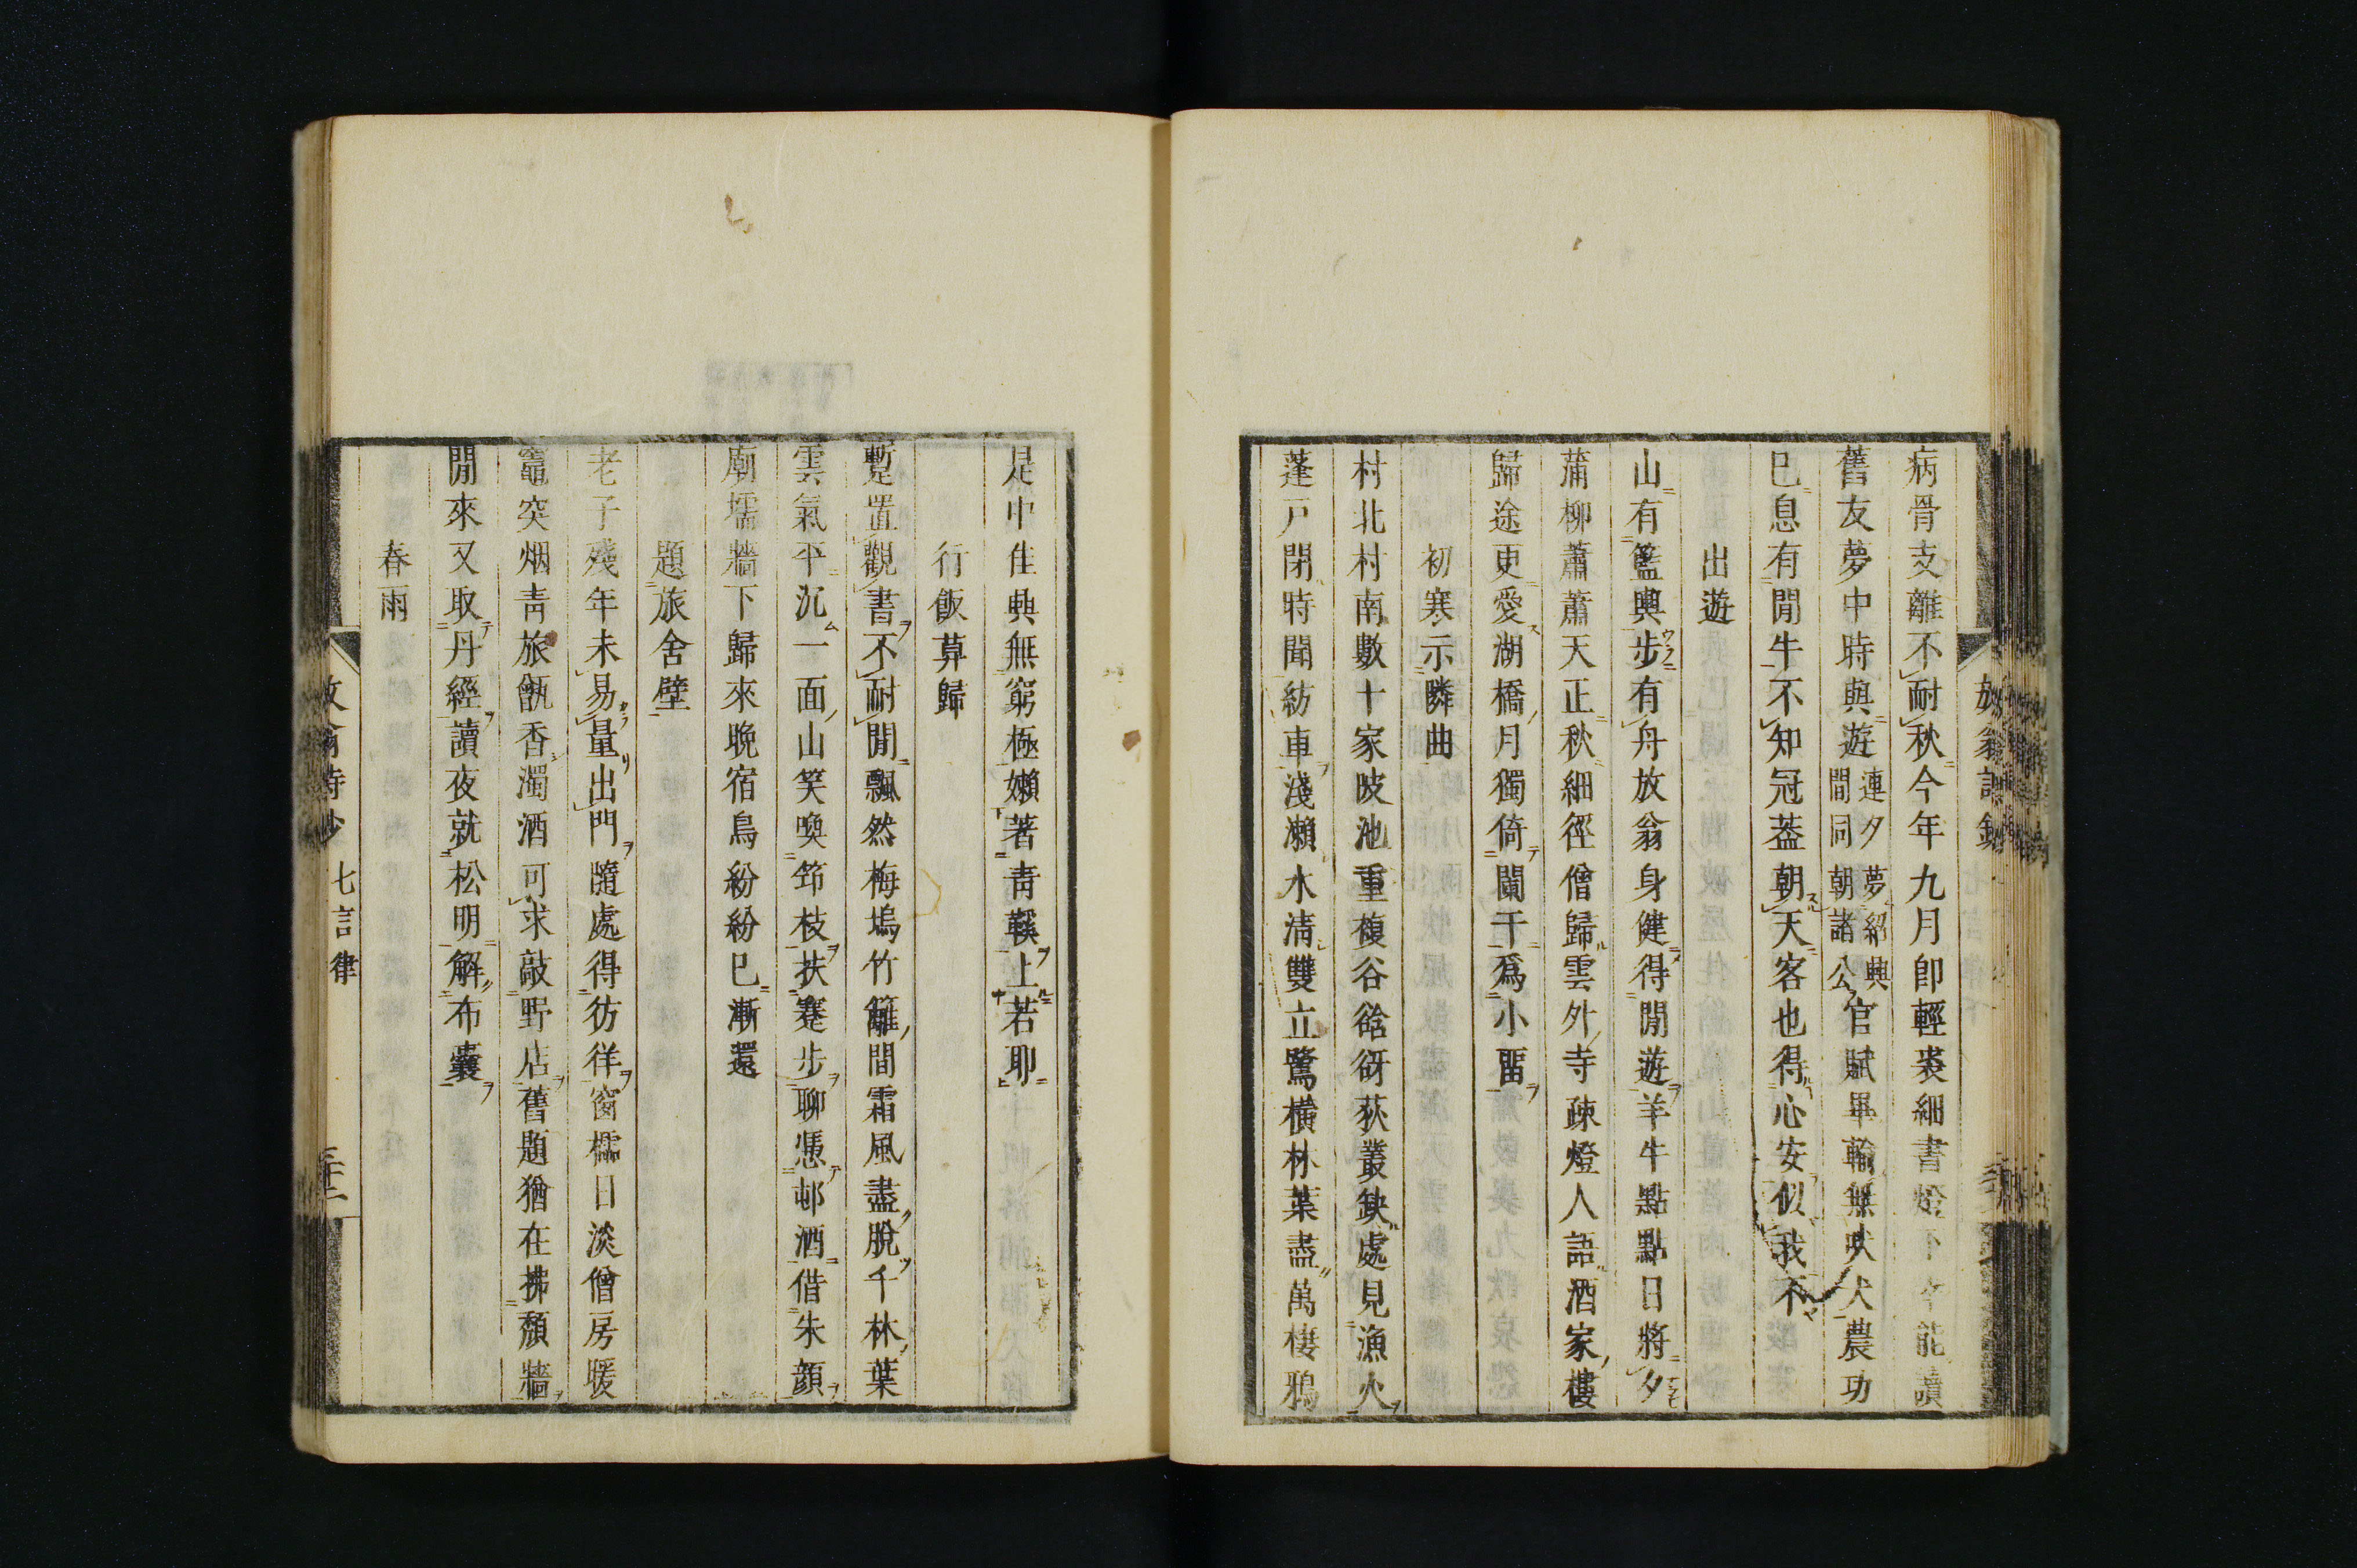 病骨支離不耐秋今年九月卽輕裘細書燈下不能讀
舊友夢中時與遊連夕夢紹興間同朝諸公官賦畢輸無吠犬農功
已息有閒牛不知冠蓋朝天客也得心安似我不
出遊
山有籃輿步有舟放翁身健得閒遊羊牛點點日將夕
蒲柳蕭蕭天正秋細徑僧歸雲外寺疎燈人語酒家樓
歸途更愛湖橋月獨倚闌干爲小畱
初寒示隣曲
村北村南數十家陂池重複谷谽谺荻叢缺處見漁火
蓬戸閉時聞紡車淺瀨水淸雙立鷺橫林葉盡萬棲鴉
是中佳興無窮極嬾著靑鞵上若耶
行飯草歸
蹔置觀書不耐閒飄然梅塢竹籬間霜風盡脫千林葉
雲氣平沉一面山笑喚筇枝扶蹇步聊憑邨酒借朱顔
廟壖牆下歸來晚宿鳥紛紛已漸還
題旅舍壁
老子殘年未易量出門隨處得彷徉窗櫺日淡僧房暖
竈突烟靑旅甑香濁酒可求敲野店舊題猶在拂頽牆
閒來又取丹經讀夜就松明解布囊
春雨
放翁詩鈔 七言律